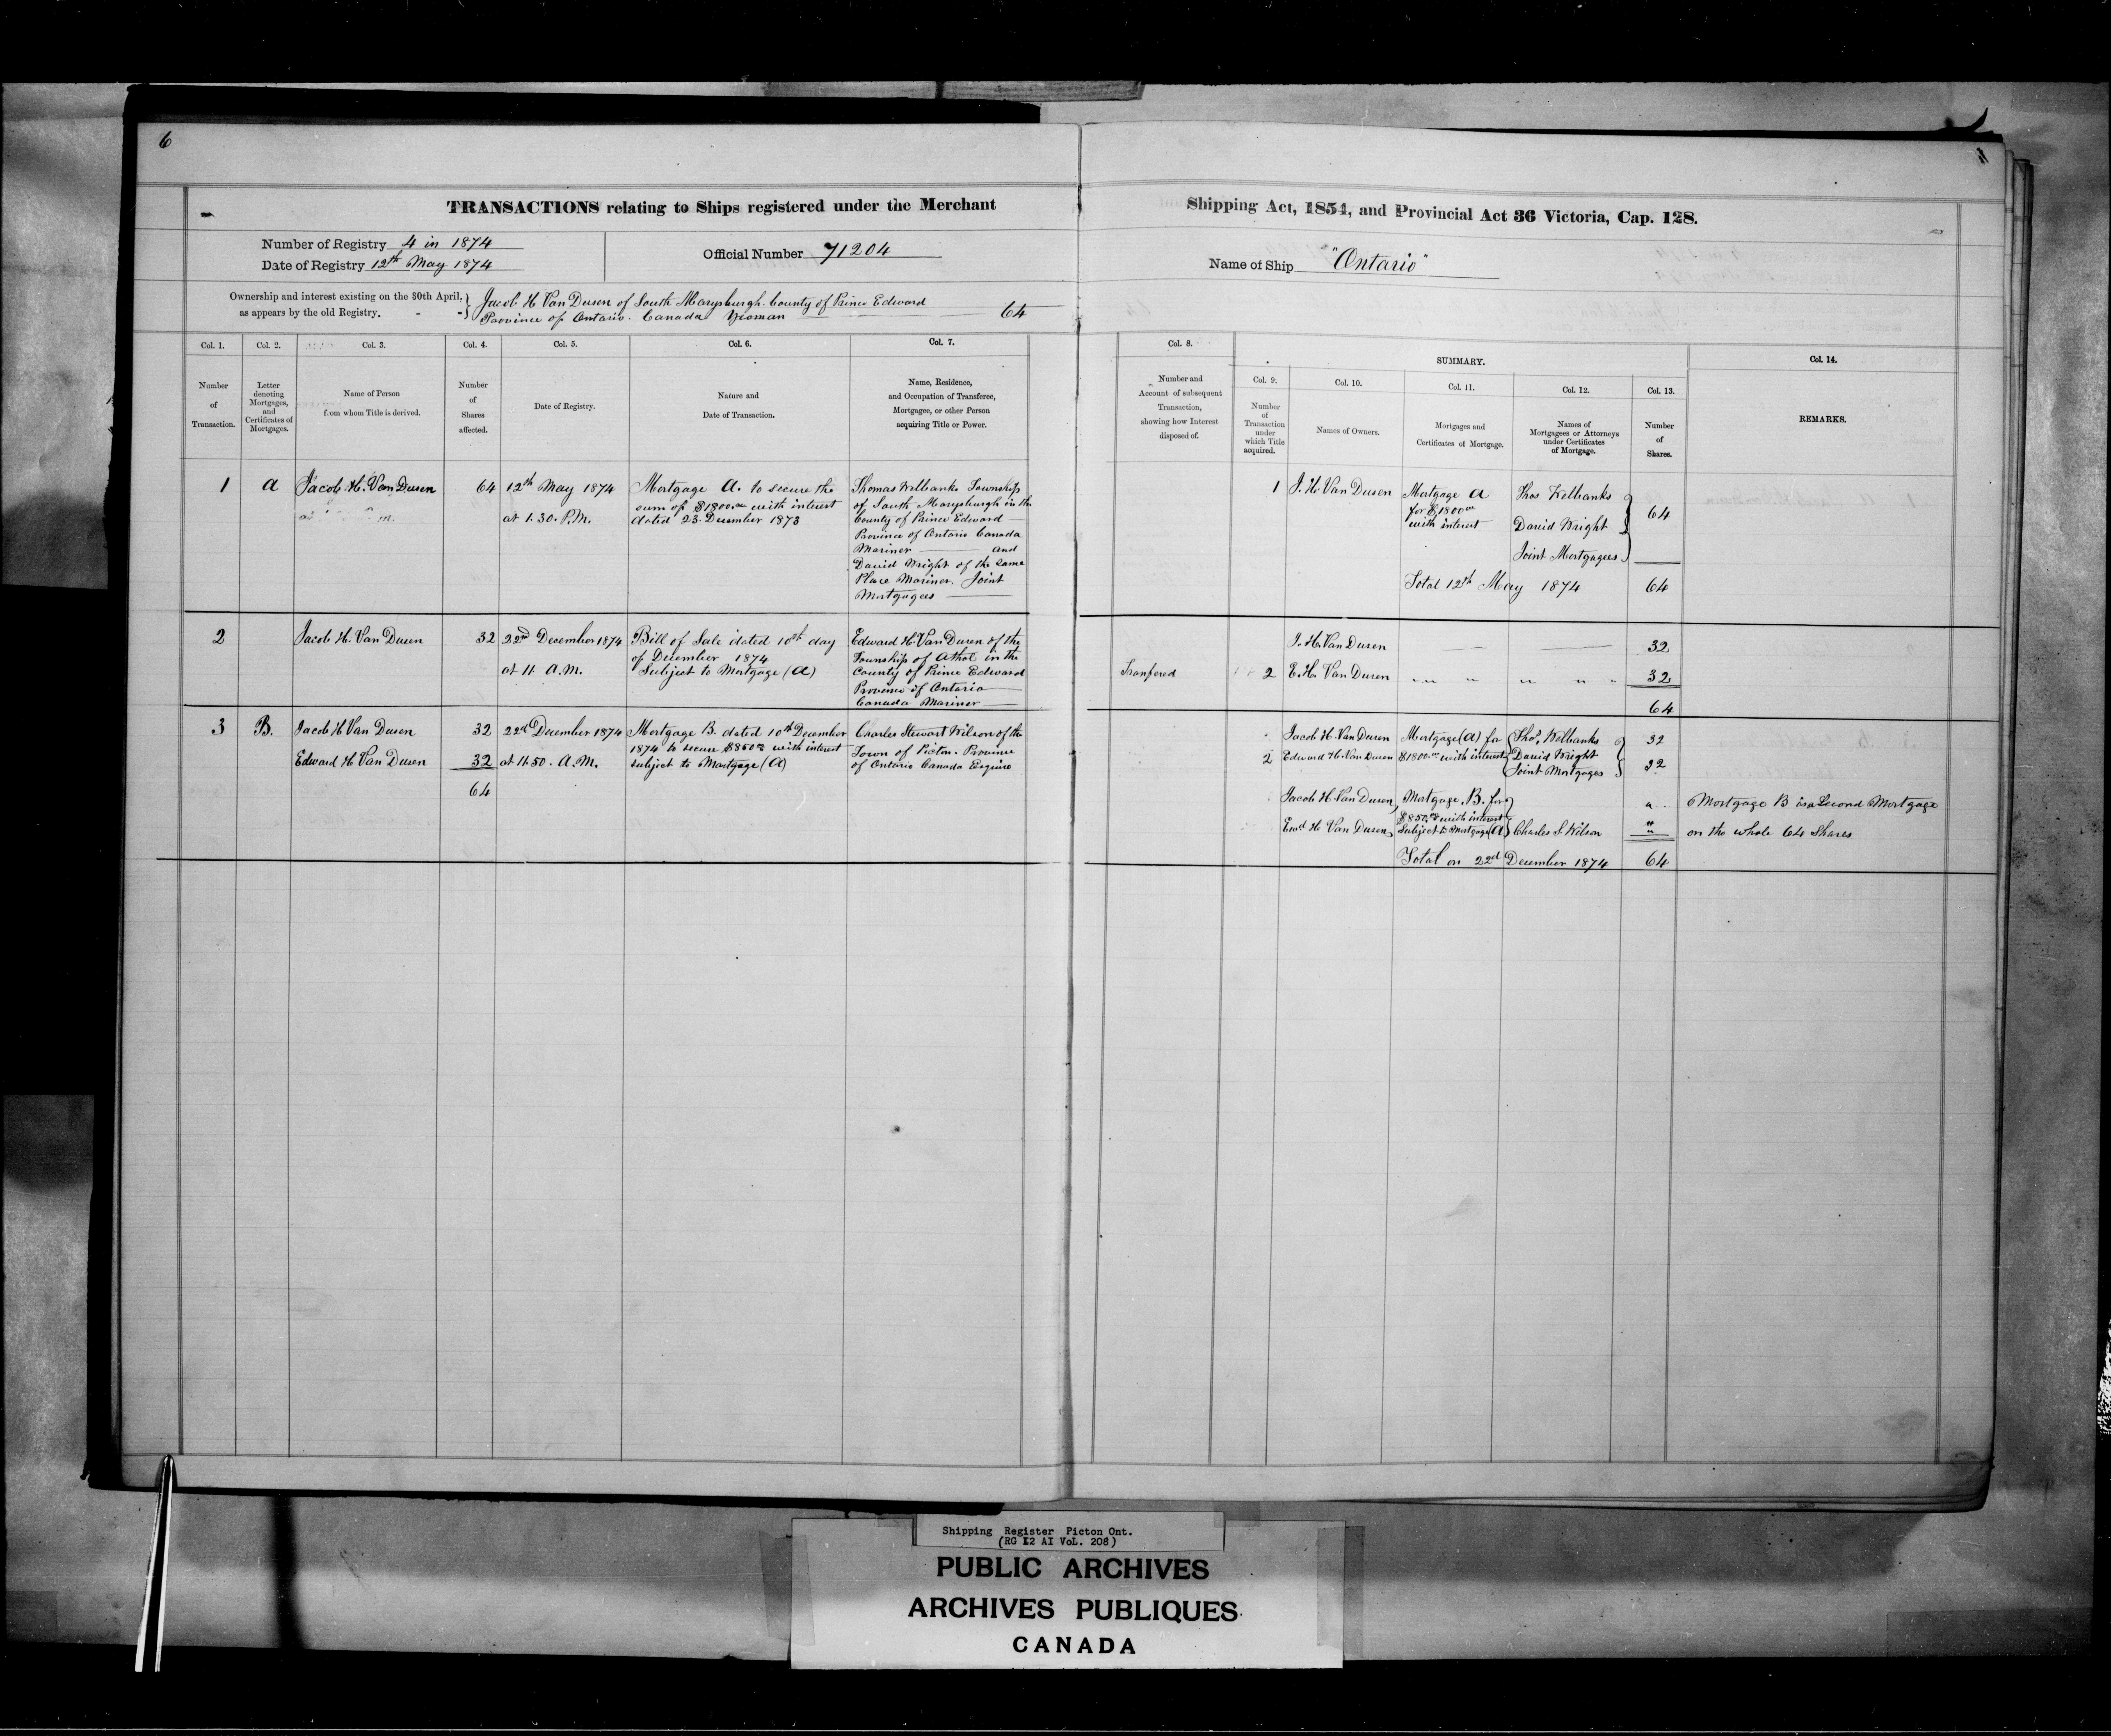 6
TRANSACTIONS relating to Ships registered under the Merchant Shipping Act, 1854, and Provincial Act 36 Victoria, Cap. 128.
Number of Registry 4 in 1874
Date of Registry 12th May 1874
Official Number 71204
Name of Ship "Ontario"
Ownership and interest existing on the 30th April,
as appears by the old Registry. - -
Jacob H Van Dusen of South Marysburgh. County of Prince Edward
Province of Ontario. Canada Yeoman 64
Col. 1.
Number
of
Transaction.
Col. 2.
Letter
denoting
Mortgages,
and
Certificates of
Mortgages.
Col. 3.
Name of Person
from whom Title is derived.
Col. 4.
Number
of
Shares
affected.
Col. 5.
Date of Registry.
Col. 6.
Nature and
Date of Transaction.
Col. 7.
Name, Residence,
and Occupation of Transferee,
Mortgagee, or other Person
acquiring Title or Power.
Col. 8.
Number and
Account of subsequent
Transaction,
showing how Interest
disposed of.
SUMMARY.
Col. 9.
Number
of
Transaction
under
which Title
acquired.
Col. 10.
Names of Owners.
Col. 11.
Mortgages and
Certificates of Mortgage.
Col. 12.
Names of
Mortgagees or Attorneys
under Certificates
of Mortgage.
Col. 13.
Number
of
Shares.
Col. 14.
REMARKS.
1
a
Jacob H. Van Dusen
64
12th May 1874
at 1.30. P.M.
Mortgage A. to secure the
sum of $1800.00 with interest
dated 23 December 1873
Thomas Welbanks Township
of South Marysburgh in the
County of Prince Edward
Province of Ontario Canada
Mariner and
David Wright of the same
Place Mariner. Joint
Mortgagees
1
J. H. Van Dusen
Mortgage a
for $1800.00
with interest
Thos Welbanks
David Wright
Joint Mortgagees
64
Total 12th May 1874 64
2
Jacob H. Van Dusen
32
22nd December 1874
at 11 A.M.
Bill of Sale dated 10th day
of December 1874
Subject to Mortgage (A)
Edward H. Van Dusen of the
Township of Athol in the
County of Prince Edward
Province of Ontario
Canada Mariner
Tranfered
J. H. Van Dusen 32
2 E. H. Van Dusen " " " " " " 32
64
3
B.
Jacob H Van Dusen 32
Edward H Van Dusen 32
64
22nd December 1874
at 11.50. A.M.
Mortgage B. dated 10th December
1874 to secure $850.00 with interest
subject to Mortgage (A)
Charles Stewart Wilson of the
Town of Picton. Province
of Ontario Canada Esquire
Jacob H. Van Dusen
2 Edward H. Van Dusen
Mortgage (a) for
$1800.00 with interest
Thos. Welbanks
David Wright
Joint Mortgages
32
32
Jacob H. Van Dusen
Ewd H. Van Dusen
Mortgage. B. for
$850.00 with interest
Subject to Mortgage (A)
Charles S. Wilson
"
"
Mortgage B is a Second Mortgage
on the whole 64 Shares
Total on 22d December 1874 64
Shipping Register Picton Ont.
(RG 12 AI VoL. 208)
PUBLIC ARCHIVES
ARCHIVES PUBLIQUES
CANADA